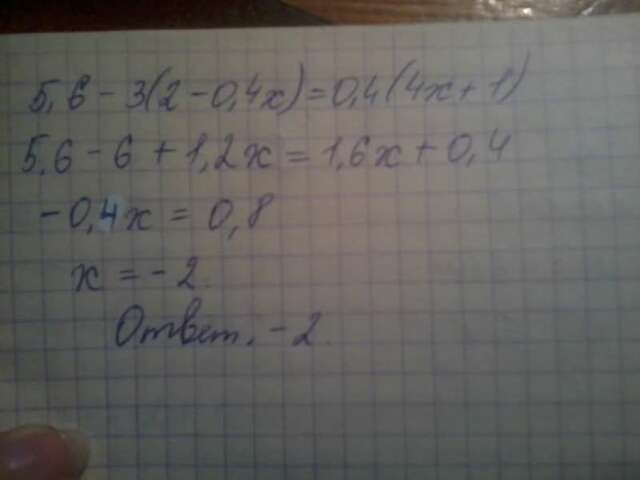 5,6 - 3(2 - 0,4x) = 0,4(4x + 1)
5,6 - 6 + 1,2x = 1,6x + 0,4
- 0,4x = 0,8
x = - 2.
Ответ. - 2.